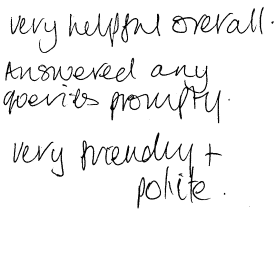 very helpful overall.
Answered any
queries promptly.
very friendly +
polite.